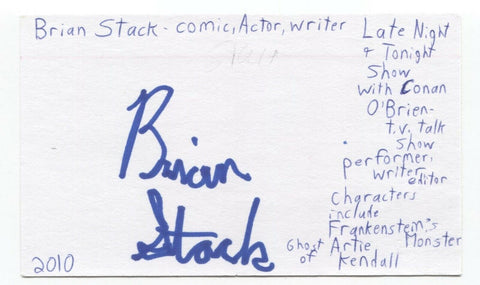 Brian Stack - comic, Actor, writer
Late Night
& Tonight
Show
with Conan
O'Brien-
t.v. talk
show
performer,
writer,
editor
Characters
include
Frankenstein's
Monster
Ghost of
Artie
Kendall
Brian
Stack
2010